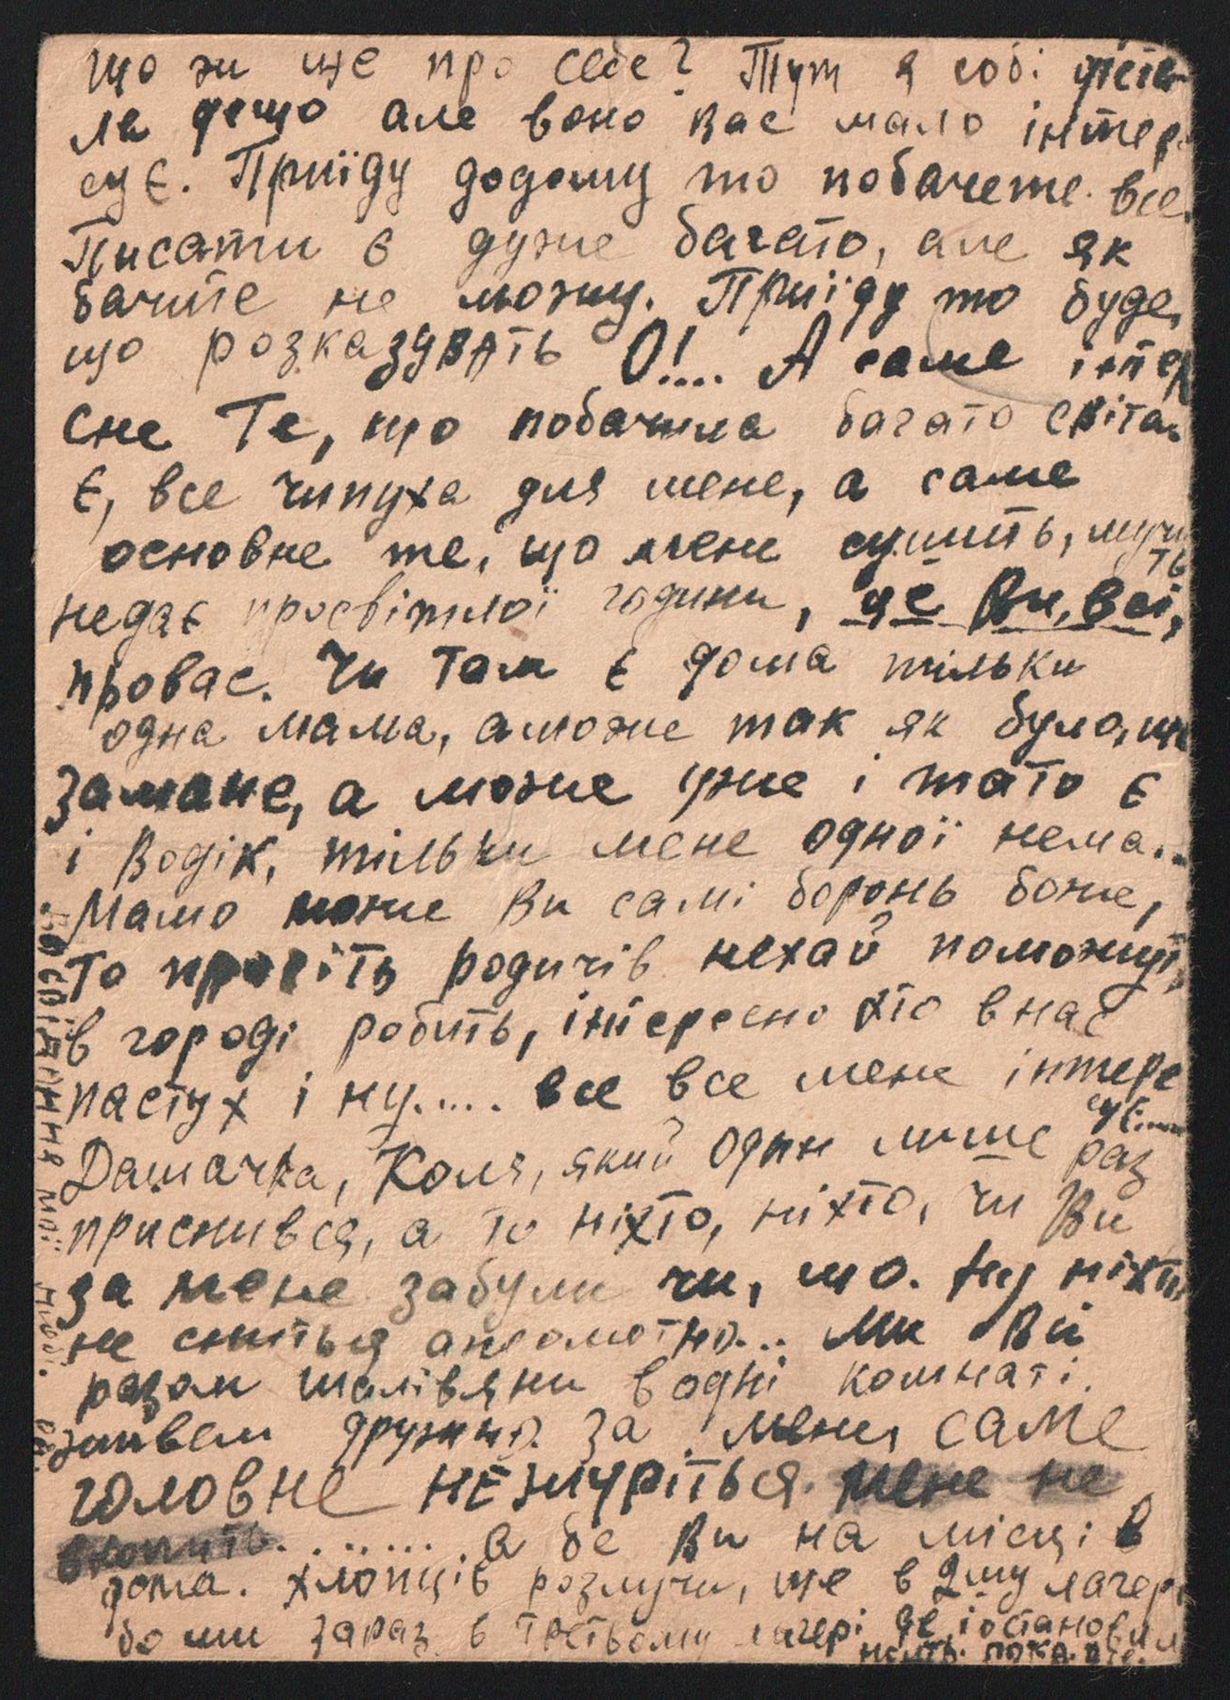 Що ж ще про себе? Тут я собі
ла дещо але воно Вас мало інтер
сує. Приїду додому то побачете все.
Писати є дуже багато, але як
бачите не можу. Приїду то буде,
що розказувать О!.... А саме інтер
сне Те, що побачила багато світа.
Є, все чипуха для мене, а саме
основне те, що мене сушить, мучи
ть
недає просвітлої години, це Ви, всі,
провас. Чи там є дома тільки
одна мама, аможе так як було, ще
замане, а може уже і тато є
і Водік, тільки мене одної нема..
Мамо може Ви самі боронь боже,
то просіть родичів нехай поможуть,
в городі робить, інтересно хто в нас
пастух і ну..... все все мене інтере
сує.....
Дашачка, Коля, який один лише раз
приснився, а то ніхто, ніхто, чи Ви
за мене забули чи, що. Ну ніхто
не сниться апсолютно... Ми Всі
разом шалівяни в одні комнаті.
живем дружно. За мене, саме
головне НЕЖУРІТЬСЯ. мене не
вкопить......... а бе Ви на місці в
дома. Хлопців розлучи, ще в 2му лагері
бо ми зараз в третьому лагері де і останов
пока. все.
До свідання мої любі.